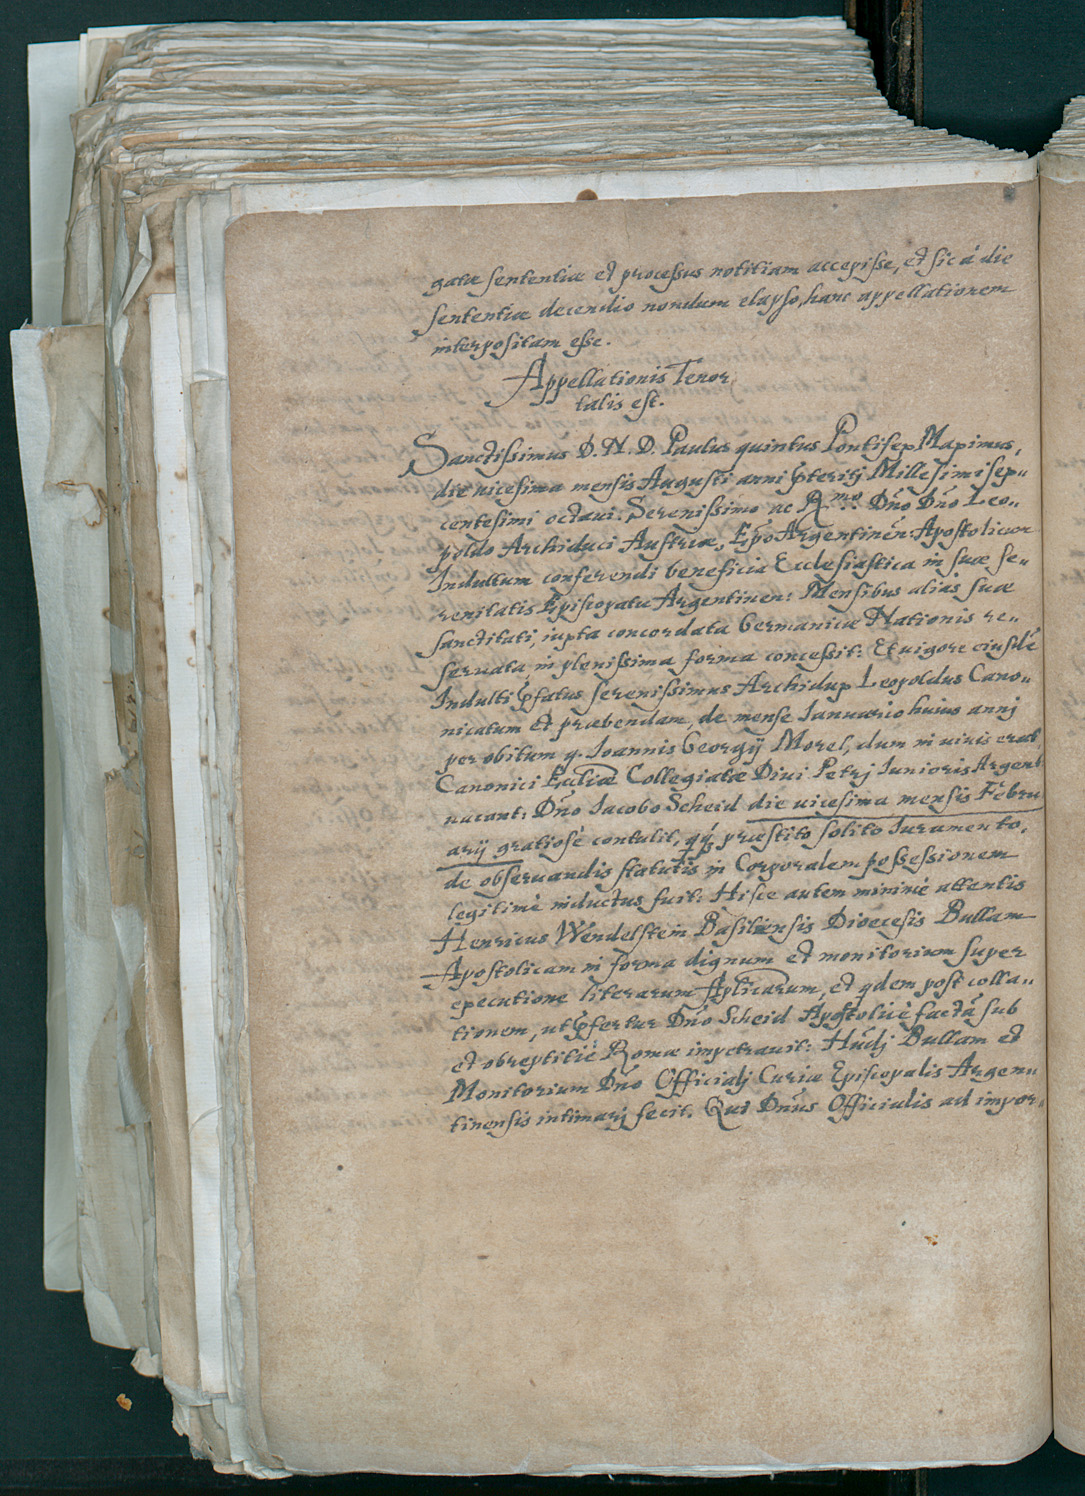 gatæ sententiæ et processus notitiam accepisse, et sic á die
sententiæ decendio nondum elapso, hanc appellationem
interpositam esse.
Appellationis Tenor
talis est.
Sanctissimus D. N. D. Paulus quintus Pontifex Maximus,
die vicesima mensis Augusti anni pteritj Millesimi sep„
centesimi octaui. Serenissimo ac R.mo: Dńo Dńo Leo„
poldo Archiduci Austriæ, Epo Argentinen: Apostolicum
Indultum conferendi beneficia Ecclesiastica in suæ se„
renitatis Episcopatu Argentinen: Mensibus alias suæ
sanctitati, iuxta concordata Germanicæ Nationis re„
seruata, in plenissima forma concessit: Et uigore eiusdē
Indulti pfatus serenissimus Archidux Leopoldus Cano„
nicatum et præbendam, de mense Januario huius annj
per obitum q. Joannis Georgÿ Morel, dum in uiuis erat
Canonici Eccliæ Collegiatæ Diui Petrj Iunioris Argent
uacant: Dńo Jacobo Scheid die uicesima mensis Febru
arÿ gratiosè contulit, qq́ præstito solito Iuramento,
de obseruandis statutis in Corporalem possessionem
legitimè inductus fuit: Hisce autem minimè attentis
Henricus Wendelstein Basiliensis Dioecesis Bullam
Apostolicam in forma dignum et monitorium super
executione literarum Aplicarum, et qdem post colla„
tionem, ut pfertur Dńo Scheid Apostolicè factā sub
et obreptitiè Romæ impetrauit: Hūdj Bullam et
Monitorium Dńo Officialj Curiæ Episcopalis Argen„
tinensis intimarj fecit. Qui Dńus Officialis ad impor„